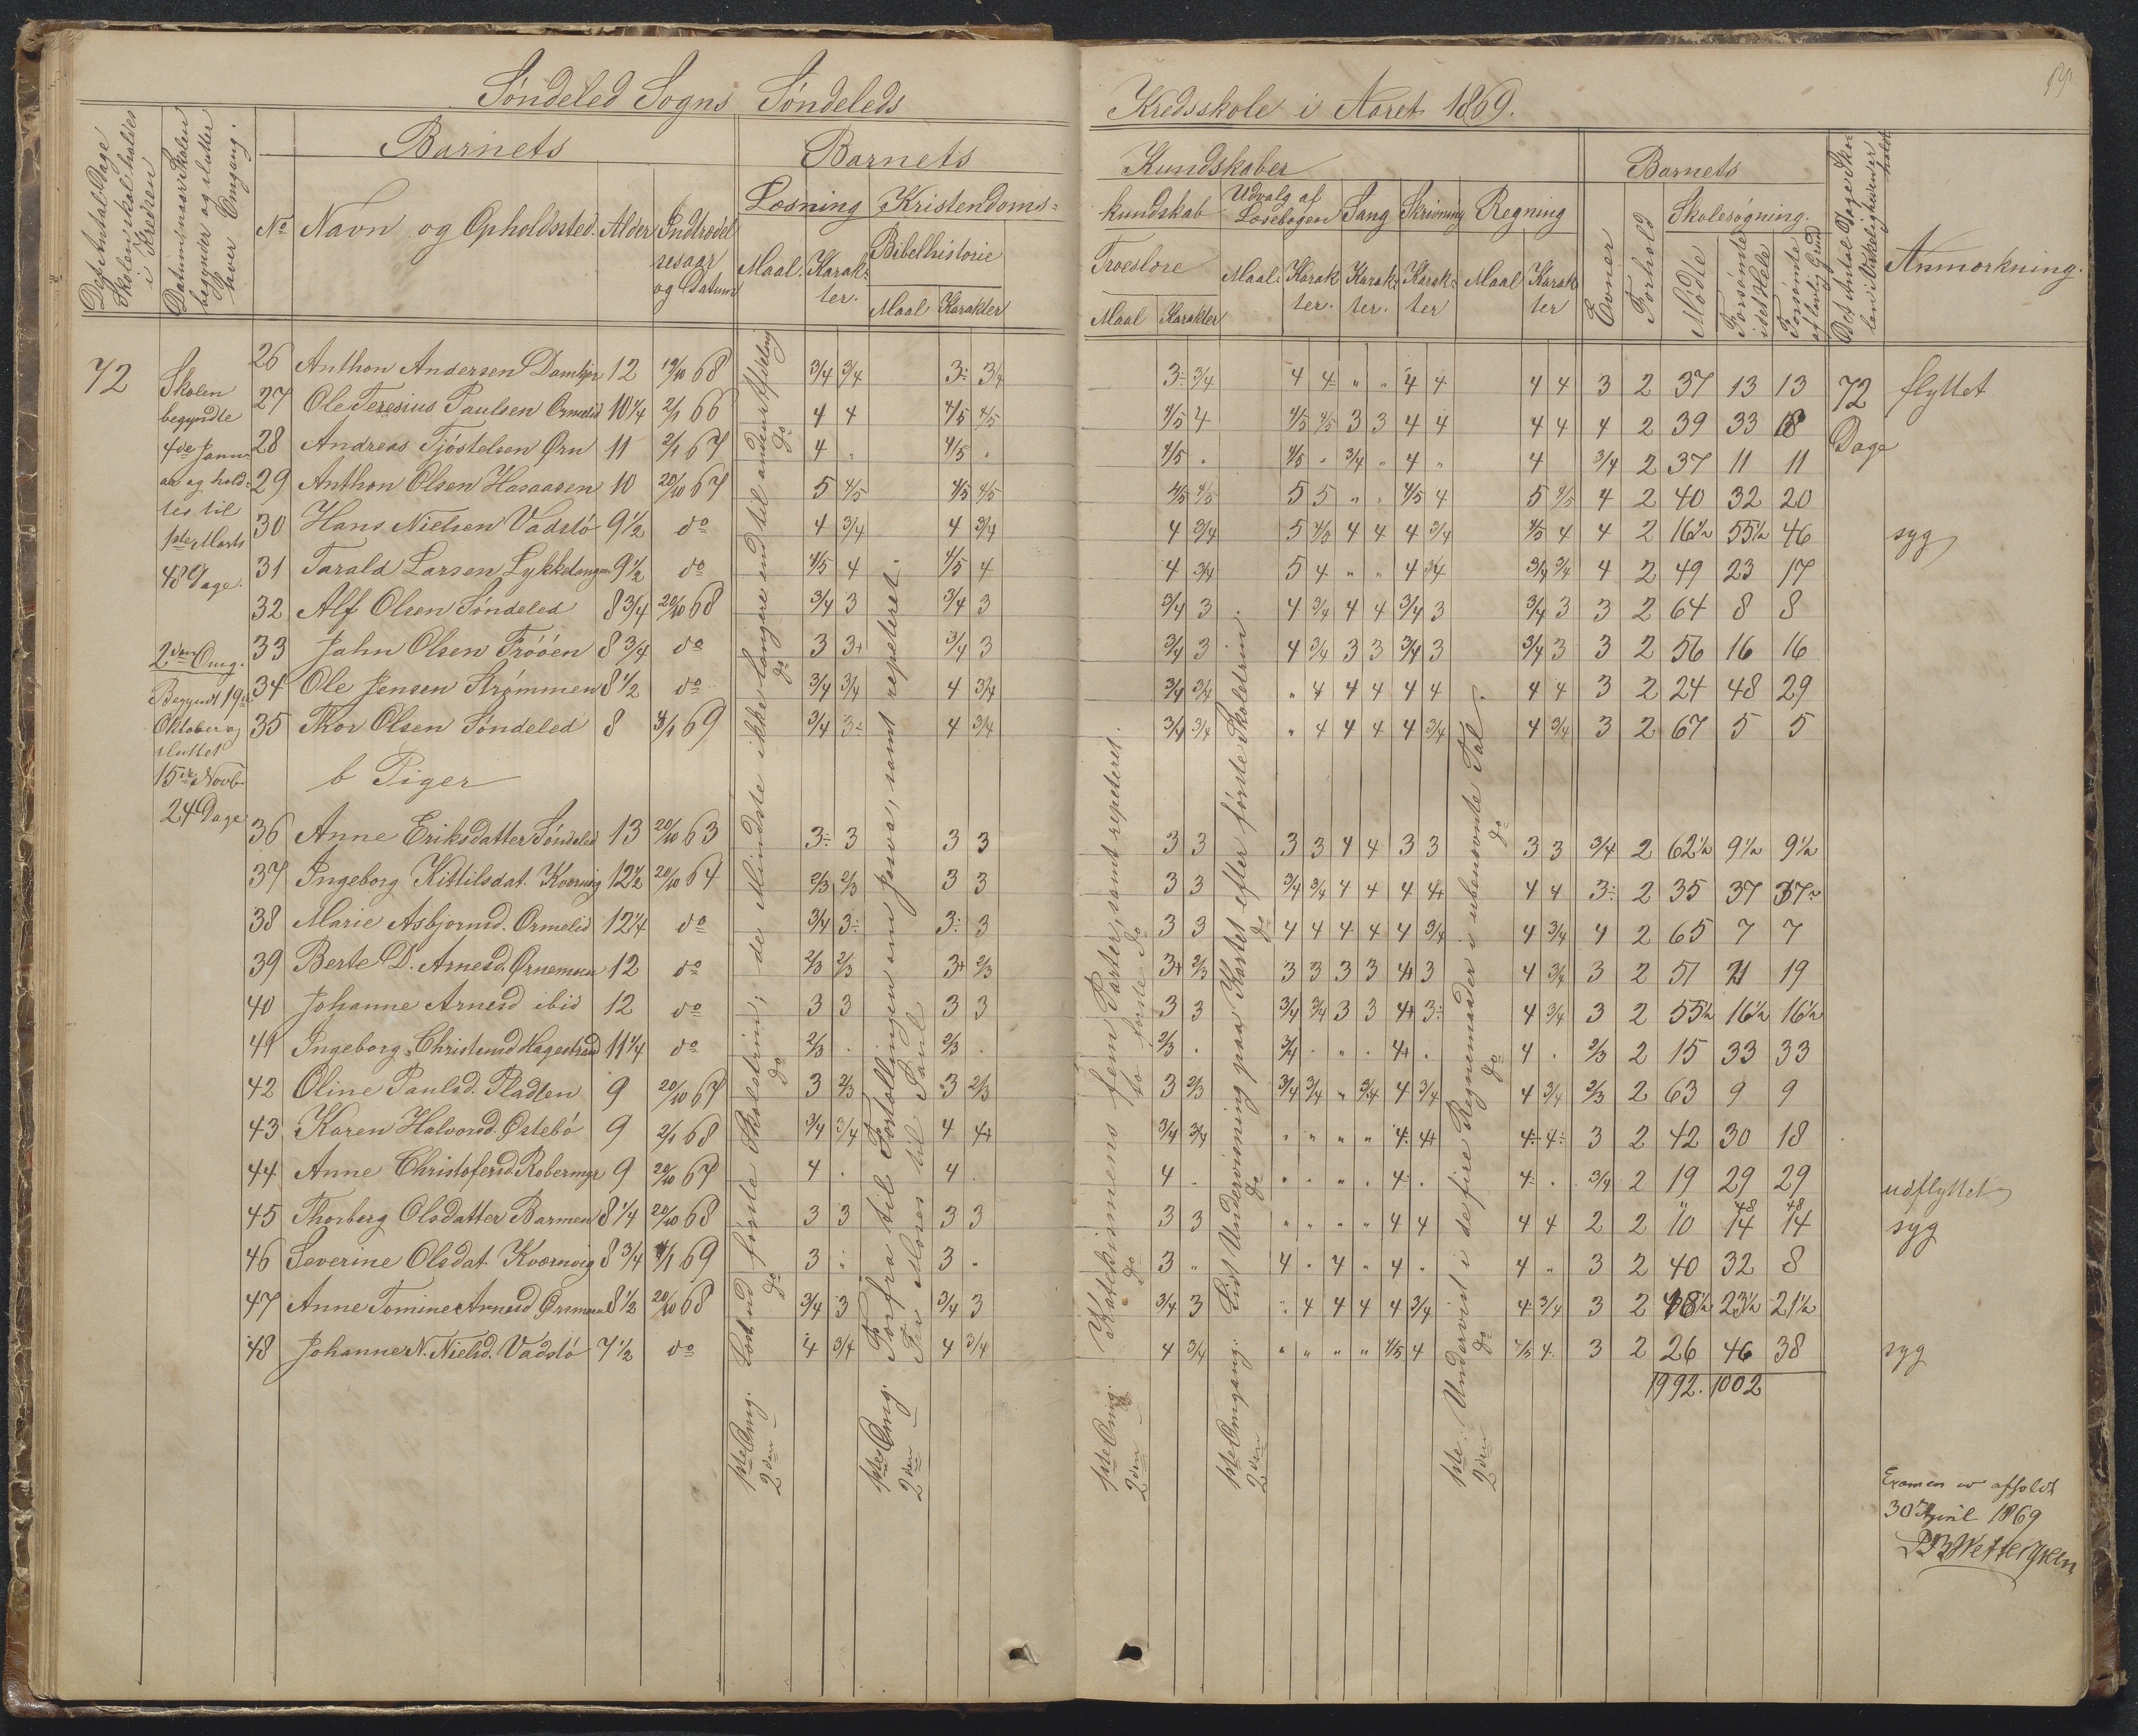 Søndeled Sogns Søndeleds Kredsskole i Aaret 1869.
Det Antal Dage Skolen skal holdes i Kredsen
Datum, naar Skolen begynder og slutter hver Omgang.
Barnets
No Navn og Opholdssted. Alder Indtrædelsesaar og Datum
Barnets Kundskaber
Læsning Kristendomskundskab
Maal. Karakter.
Bibelhistorie
Maal Karakter
Troeslære
Maal Karakter
Udvalg af Læsebogen
Maal Karakter.
Sang
Karakter.
Skrivning
Karakter
Regning
Maal Karakter
Barnets
Evner
Forhold
Skolesøgning.
Mødte
Forsømte i det Hele
Forsømte af lovlig Grund
Det Antal Dage Skolen i Virkeligheden er holdt
Anmærkning.
72
Skolen
begyndte
4de Janu-
ar og hold-
tes til
1ste Marts
48 Dage.
2den Omg.
Begyndt 19de
Oktober og
sluttet
15de Novb.
24 Dage
26 Anthon Andersen 12 19/10 68 3/4 3/4 3÷ 3/4 3÷ 3/4 4 4÷ " " 4 4 4 4 3 2 37 13 13 72 flyttet
27 Ole Teresius Paulsen Ormelid 10 1/4 2/1 66 4 4 4/5 4/5 4/5 4 4/5 4/5 3 3 4 4 4 4 4 2 39 33 18 Dage
28 Andreas Tjöstelsen Ørn 11 2/1 67 4 " 4/5 " 4/5 " 4/5 " 3/4 " 4 " 4 3/4 2 37 11 11
29 Anthon Olsen Hasaasen 10 20/10 67 5 4/5 4/5 4/5 4/5 4/5 5 5 " " 4/5 4 5 4/5 4 2 40 32 20
30 Hans Nielsen Vadslö 9 1/2 do 4 3/4 4 3/4 4 3/4 5 4/5 4 4 4 3/4 4/5 4 4 2 16 1/2 55 1/2 46 syg
31 Tarald Larsen 9 1/2 do 4/5 4 4/5 4 4 3/4 5 4 " " 4 3/4 3/4 3/4 4 2 49 23 17
32 Alf Olsen Söndeled 8 3/4 20/10 68 3/4 3 3/4 3 3/4 3 4 3/4 4 4 3/4 3 3/4 3 3 2 64 8 8
33 Jahn Olsen Tröóen 8 3/4 do 3 3+ 3/4 3 3/4 3 4 3/4 3 3 3/4 3 3/4 3 3 2 56 16 16
34 Ole Jensen Strømmen 8 1/2 do 3/4 3/4 4 3/4 3/4 3/4 " 4 4 4 4 4 4 4 3 2 24 48 29
35 Thor Olsen Söndeled 8 4/1 69 3/4 3÷ 4 3/4 3/4 3/4 " 4 4 4 4 3/4 4 3/4 3 2 67 5 5
b Piger
36 Anne Eriksdatter Söndeled 13 20/10 63 3÷ 3 3 3 3 3 3 3 4 4 3 3 3 3 3/4 2 62 1/2 9 1/2 9 1/2
37 Ingeborg Kittilsdat. Kværnvig 12 1/2 20/10 64 2/3 2/3 3 3 3 3 3/4 3/4 4 4 4 4+ 4 4 3÷ 2 35 37 37
38 Marie Asbjørnsd. Ormelid 12 1/4 do 3/4 3÷ 3÷ 3 3 3 4 4 4 4 4 3/4 4 3/4 4 2 65 7 7
39 Berte D. Arnesd. Ørnemoen 12 do 2/3 2/3 3+ 2/3 3+ 2/3 3 3 3 3 4+ 3 4 3/4 3 2 51 21 19
40 Johanne Arnesd ibid 12 do 3 3 3 3 3 3 3/4 3/4 3 3 4+ 3÷ 4 3/4 3 2 55 1/2 16 1/2 16 1/2
41 Ingeborg Christensd Hagestrand 11 1/4 do 2/3 . 2/3 . 2/3 . 3/4 . . . 4+ . 4 . 2/3 2 15 33 33
42 Oline Paulsd. Pladsen 9 20/10 67 3 2/3 3 2/3 3 2/3 3/4 3/4 " 3/4 4 3/4 4 3/4 2/3 2 63 9 9
43 Karen Halvorsd. Østebö 9 2/1 68 3/4 3/4 4 4+ 3/4 3/4 " " " " 4÷ 4+ 4÷ 4÷ 3 2 42 30 18
44 Anne Christofersd Robermyr 9 20/10 67 4 . 4 . 4 . " " " " 4÷ . 4÷ . 3/4 2 19 29 29 udflyttet
45 Thorberg Olsdatter Barmen 8 1/4 20/10 68 3 3 3 3 3 3 " " " " 4 4 4 4 2 2 10 14 14 syg
48 48
46 Severine Olsdat. Kværnvig 8 3/4 4/1 69 3 " 3 " 3 " 4 " 4 " 4 " 4 " 3 2 40 32 8
47 Anne Tomine Arnesd 8 1/2 20/10 68 3/4 3 3/4 3 3/4 3 " 4 4 4 4 3/4 4 3/4 3 2 48 1/2 23 1/2 21 1/2
48 Johanne N. Nielsd. Vadslö 7 1/2 do 4 3/4 4 3/4 4 3/4 " " " " 4/5 4 4/5 4 3 2 26 46 38 syg
1992. 1002
1ste Omg. Læst ind første Skoletrin; de Mindste ikke længere end til anden Afdeling
2den do do do do
1ste Omg. Forfra til Fortællingen om Josva, samt repeteret.
2den Fra Moses til Saul
1ste Omg. Katekismens fem Parter, samt repeteret.
2den do do to første do
1ste Omgang: Lidt Undervisning paa Kartet efter første Skoletrin.
2den do do
1ste: Undervist i de fire Regnemaader i ubenævnte Tal.
2den do do do
Examen er afholdt
30te April 1869